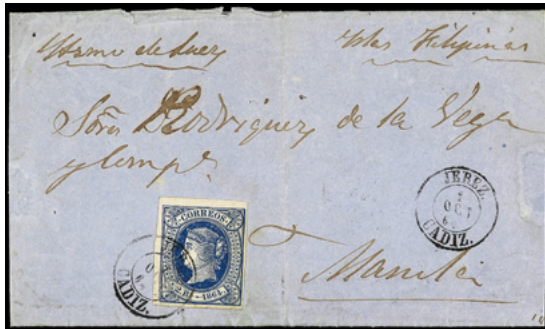 Ystmo de Suez Yslas Filipinas
Sres Rodriguez de la Vega
y Compª
JEREZ.
1
OCT
CADIZ.
CORREOS
2 Rs 1864
CADIZ.
Manila